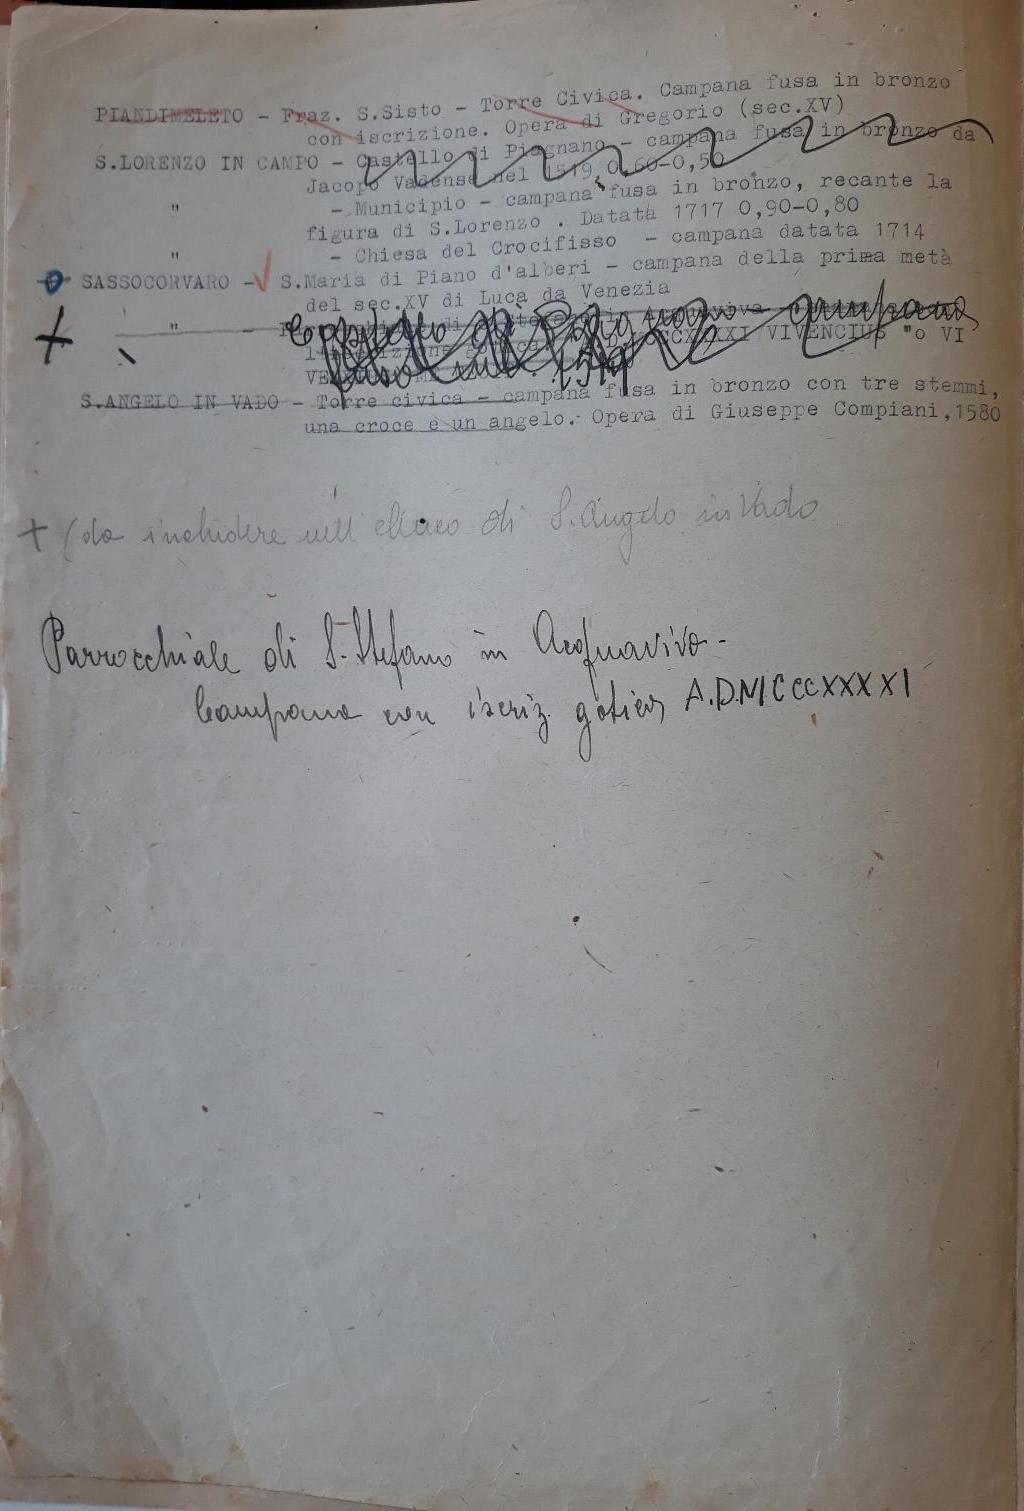 PIANDIMELETO - Fraz. S.Sisto - Torre Civica. Campana fusa in bronzo
con iscrizione. Opera di Gregorio (sec.XV)
S.LORENZO IN CAMPO - Castello di Piagnano - campana fusa in bronzo da
Jacopo Vadense nel 1519, 0,60-0,50
" - Municipio - campana fusa in bronzo, recante la
figura di S.Lorenzo . Datata 1717 0,90-0,80
" - Chiesa del Crocifisso - campana datata 1714
SASSOCORVARO - S.Maria di Piano d'alberi - campana della prima metà
del sec.XV di Luca da Venezia
+ " - Castello di campana
VIVENCIUS "o VI
1519
S.ANGELO IN VADO - Torre civica - campana fusa in bronzo con tre stemmi,
una croce e un angelo. Opera di Giuseppe Compiani,1580
+ (da includere nell'elenco di S. Angelo in Vado
Parrocchiale di S. Stefano in Acquaviva -
Campana con iscriz. gotica A.D.MCCCXXXXI